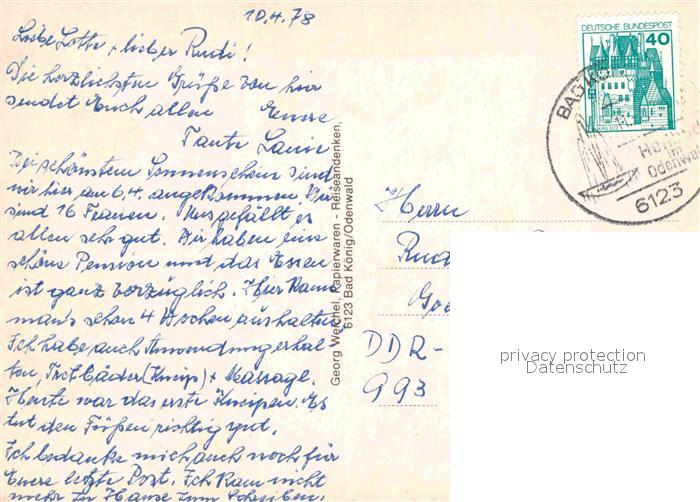 10.4.78
Liebe Lotte + lieber Rudi!
Die herzlichsten Grüße von hier
sendet Euch allen Eure
Tante
Bei schönstem Sonnenschein sind
wir hier am 6.4. angekommen. Wir
sind 16 Frauen. Uns gefällt es
allen sehr gut. Wir haben eine
schöne Pension und das Essen
ist ganz vorzüglich. Hier kann
man's schon 4 Wochen aushalten.
Ich habe auch Anwendung erhal-
ten, (Kneip) + Massage.
Heute war das erste Kneipen. Es
tut den Füßen richtig gut.
Ich bedanke mich auch noch für
Eure letzte Post. Ich kam nicht
mehr zu Hause zum Schreiben.
Georg Weichel, Papierwaren - Reiseandenken,
6123 Bad König/Odenwald
DEUTSCHE BUNDESPOST
40
BAD
im
Odenwald
6123
Herrn
DDR-
993
privacy protection
Datenschutz